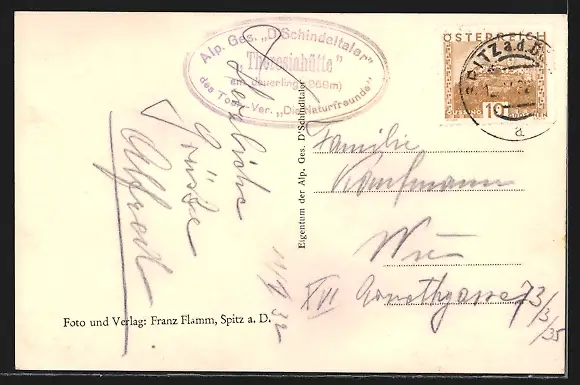 Alp. Ges. „D'Schindeltaler"
"Theresiahütte"
am Jauerling (266m)
des Tour.-Ver. „Die Naturfreunde"
ÖSTERREICH
SPITZ a.d.D.
a
10
Herzliche
Grüsse
Alfred
Eigentum der Alp. Ges. D'Schindeltaler
Familie
Kaufmann
Wien
XVI Arnethgasse 73/3/35
Foto und Verlag: Franz Flamm, Spitz a. D.